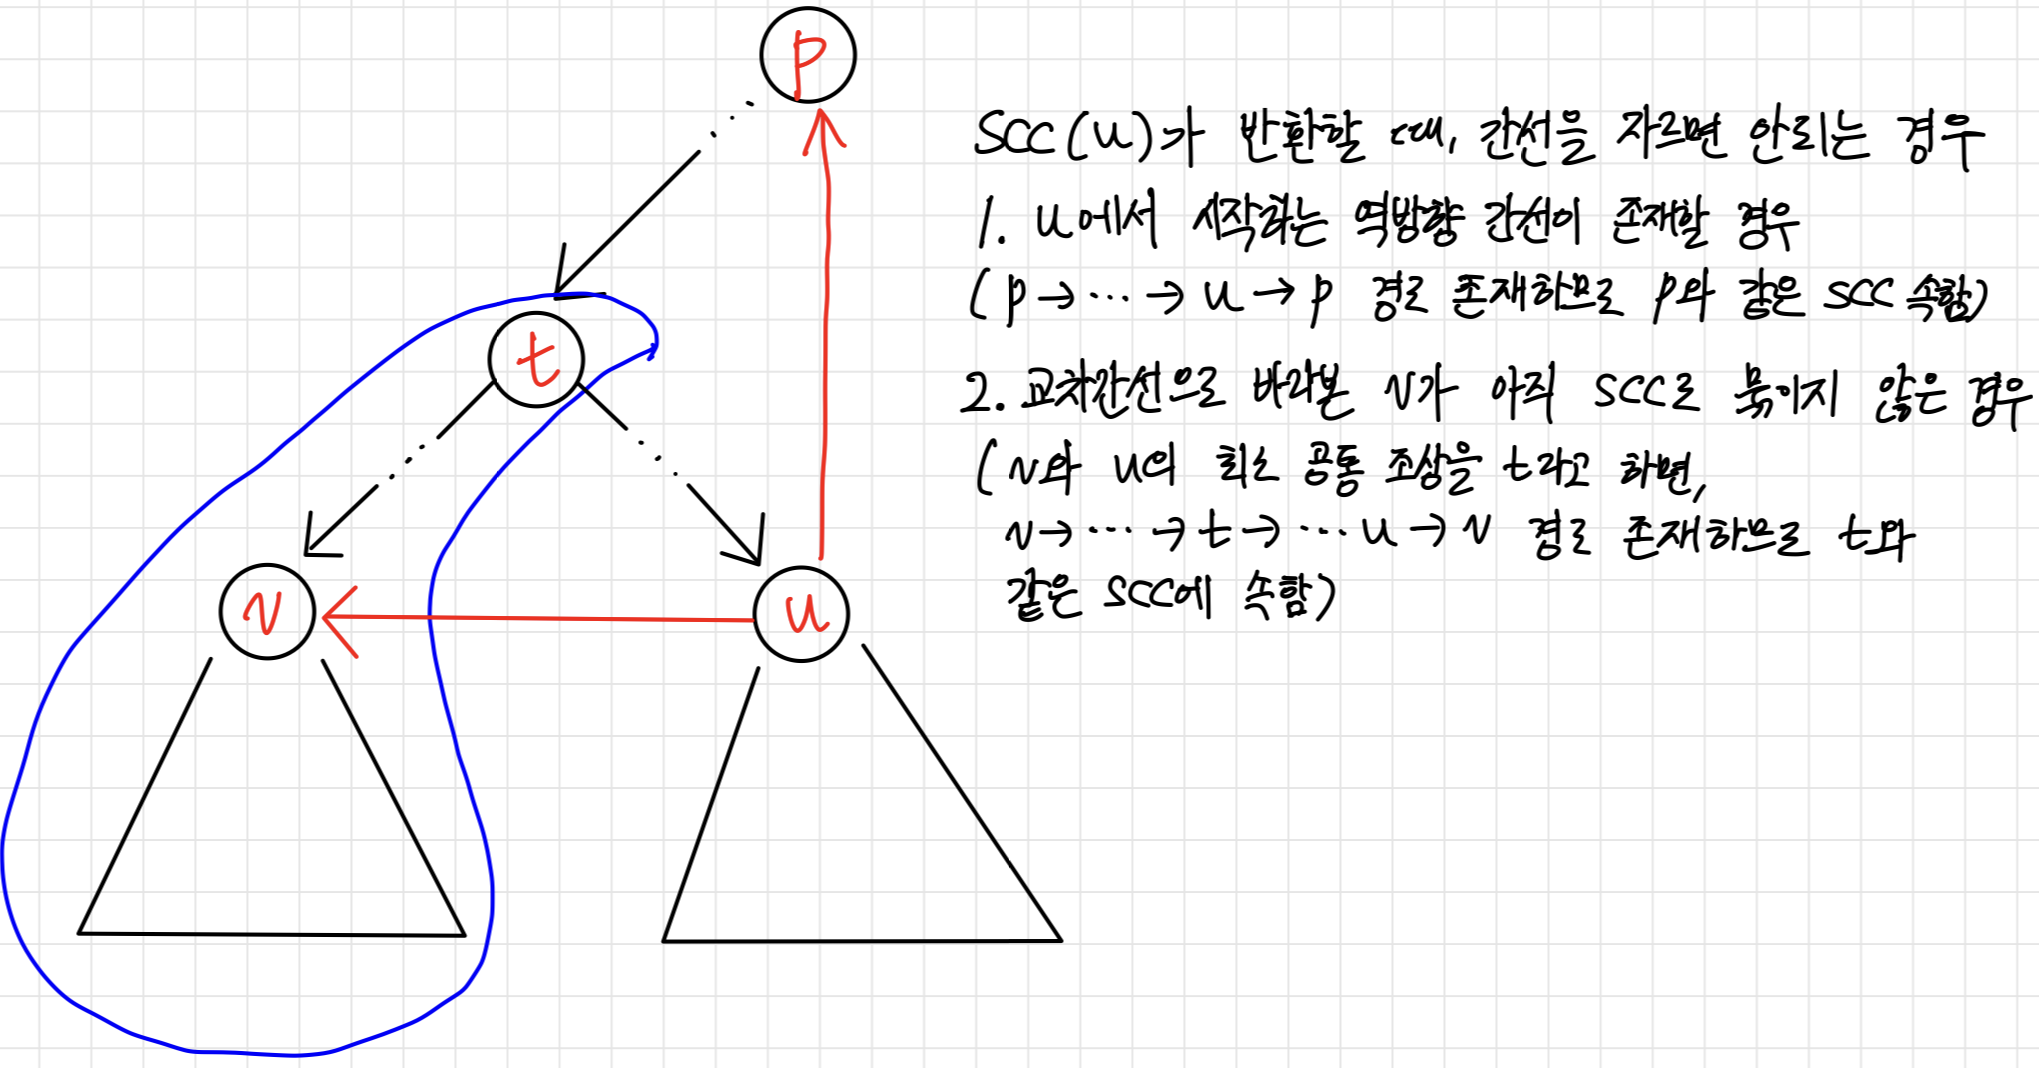 p
SCC(u)가 반환할 때, 간선을 자르면 안되는 경우
1. u에서 시작하는 역방향 간선이 존재할 경우
(p→⋯→u→p 경로 존재하므로 p와 같은 SCC 속함)
t
2. 교차간선으로 바라본 v가 아직 SCC로 묶이지 않은 경우
(v와 u의 최소 공통 조상을 t라고 하면,
v→⋯→t→⋯u→v 경로 존재하므로 t와
같은 SCC에 속함)
v
u